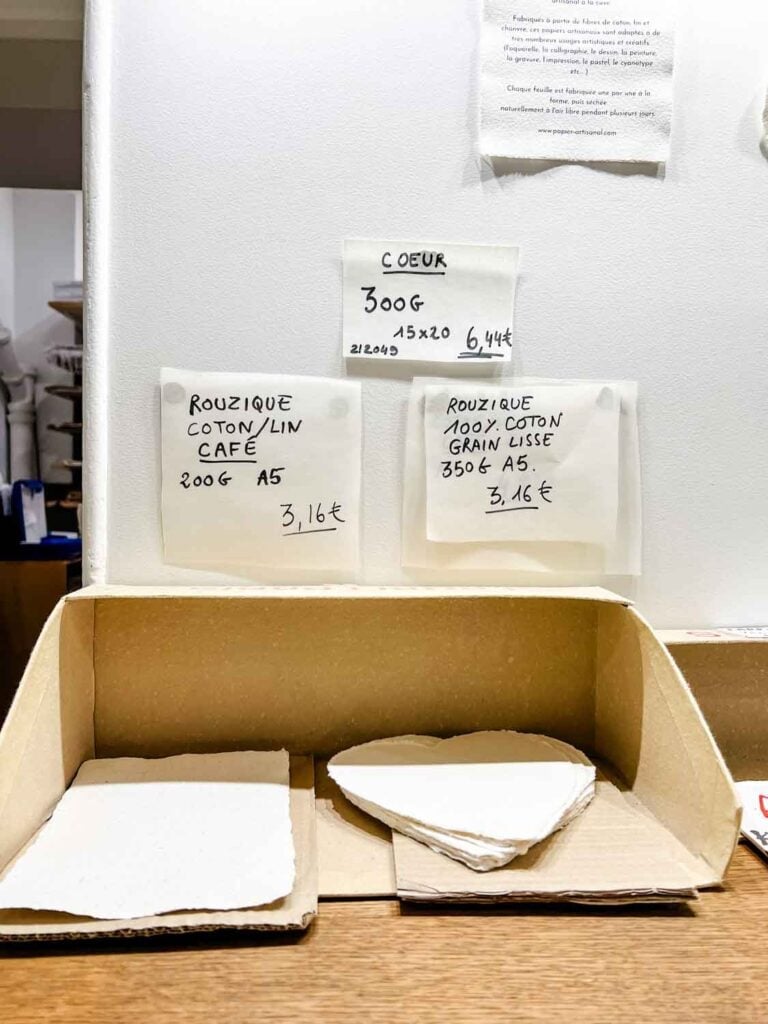 artisanal à la cuve
Fabriqués à partir de fibres de coton, lin et
chanvre, ces papiers artisanaux sont adaptés à de
très nombreux usages artistiques et créatifs
(l'aquarelle, la calligraphie, le dessin, la peinture,
la gravure, l'impression, le pastel, le cyanotype
etc...)
Chaque feuille est fabriquée une par une à la
forme, puis séchée
naturellement à l'air libre pendant plusieurs jours
www.papier-artisanal.com
COEUR
300G
15x20 6,44€
212049
ROUZIQUE
COTON/LIN
CAFÉ
200G A5
3,16€
ROUZIQUE
100% COTON
GRAIN LISSE
350G A5.
3,16€